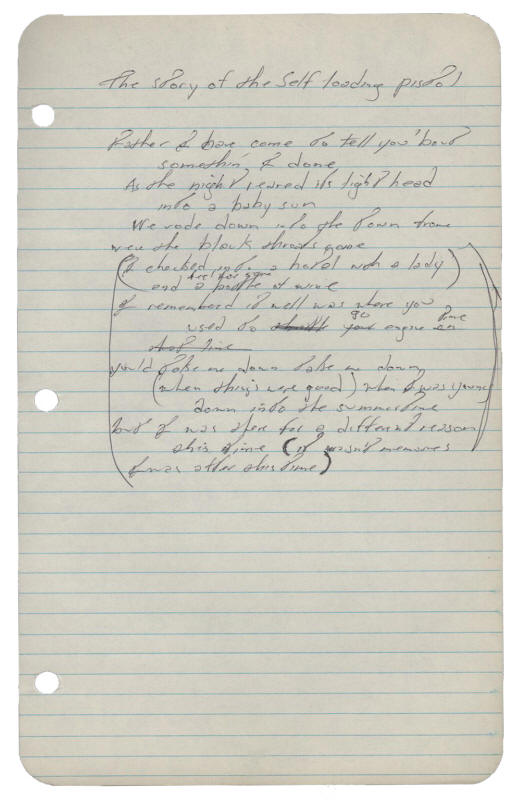 The story of the Self loading pistol
Father I have come to tell you 'bout
somethin' I done
As the night reared its light head
into a baby sun
We rode down into the town from
were the black throats gave
(I checked into a hotel with a lady)
and a bottle of wine
I remembered it well was where you
go time
used to your engine
you'd take me down take me down
(when things were good) when I was young
down into the summertime
but I was there for a different reason
this time (it wasn't memories
I was after this time)